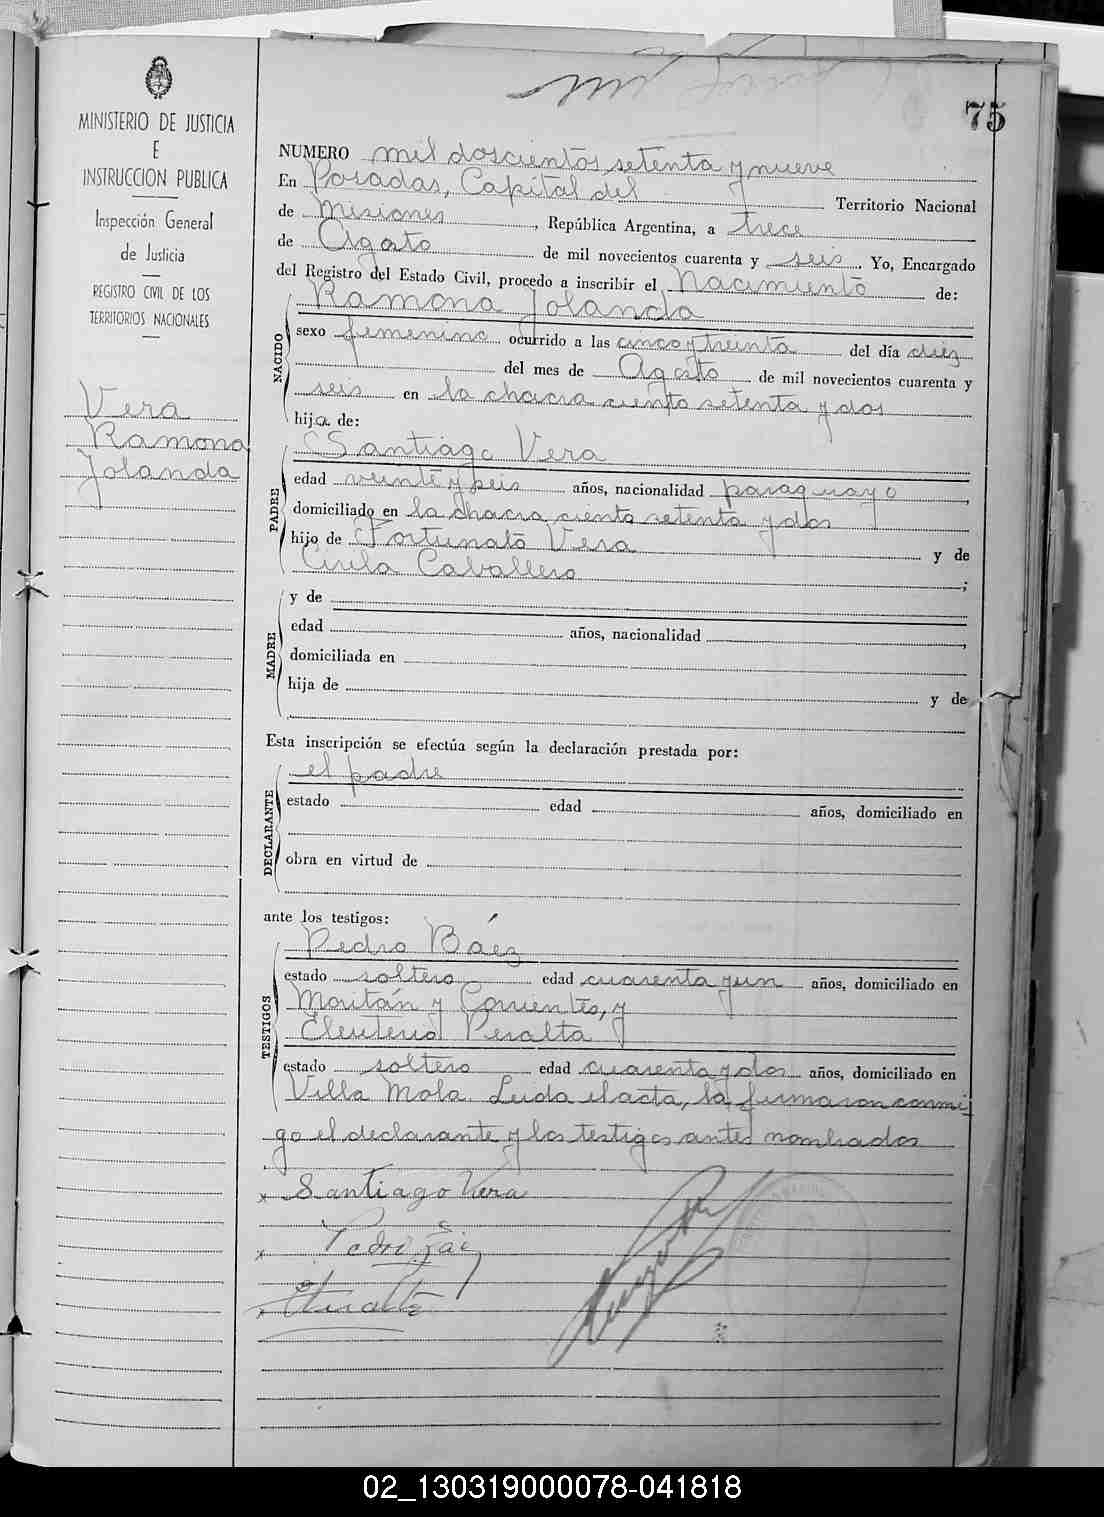 75
MINISTERIO DE JUSTICIA
E
INSTRUCCION PUBLICA
Inspección General
de Justicia
REGISTRO CIVIL DE LOS
TERRITORIOS NACIONALES
Vera
Ramona
Jolanda
NUMERO mil doscientos setenta y nueve
En Posadas, Capital del Territorio Nacional
de Misiones, República Argentina, a trece
de Agosto de mil novecientos cuarenta y seis. Yo, Encargado
del Registro del Estado Civil, procedo a inscribir el Nacimiento de:
NACIDO
Ramona Jolanda
sexo femenino ocurrido a las cinco y treinta del día diez
del mes de Agosto de mil novecientos cuarenta y
seis en la chacra ciento setenta y dos
hija de:
PADRE
Santiago Vera
edad veinte y seis años, nacionalidad paraguayo,
domiciliado en la chacra ciento setenta y dos
hijo de Fortunato Vera y de
Cirila Caballero;
MADRE
y de
edad años, nacionalidad,
domiciliada en
hija de y de
Esta inscripción se efectúa según la declaración prestada por:
DECLARANTE
el padre
estado edad años, domiciliado en
obra en virtud de
ante los testigos:
TESTIGOS
Pedro Báez
estado soltero edad cuarenta y un años, domiciliado en
Moritán y Corrientes, y
Eleuterio Peralta
estado soltero edad cuarenta y dos años, domiciliado en
Villa Mola. Leida el acta, la firmaron conmi-
go el declarante y los testigos antes nombrados
Santiago Vera
Pedro Báez
02_130319000078-041818